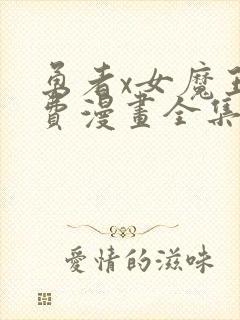 勇者x女魔王
費漫畫全集
愛情的滋味